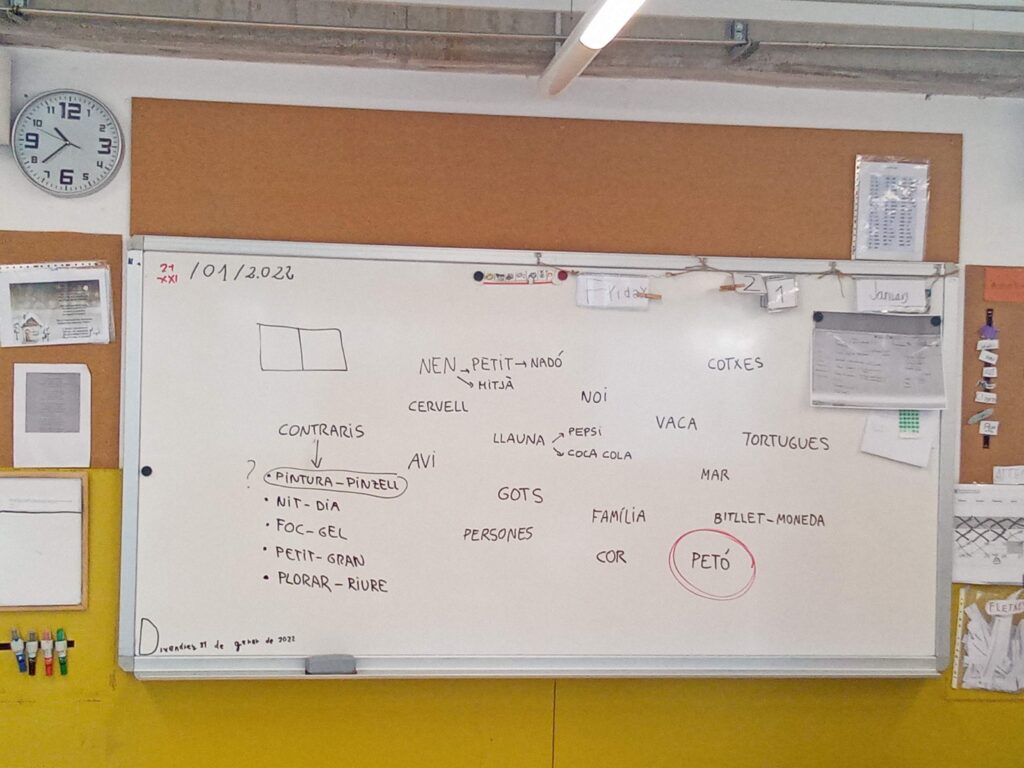 12
1
2
3
4
5
6
7
8
9
10
11
21
XXI
/01/2022
Friday
21
January
NEN → PETIT → NADÓ
→ MITJÀ
COTXES
NOI
CERVELL
VACA
CONTRARIS
LLAUNA
PEPSI
COCA COLA
TORTUGUES
AVI
MAR
?
• PINTURA - PINZELL
• NIT - DIA
• FOC - GEL
• PETIT - GRAN
• PLORAR - RIURE
GOTS
FAMÍLIA
BITLLET - MONEDA
PERSONES
COR
PETÓ
Divendres 21 de gener de 2022